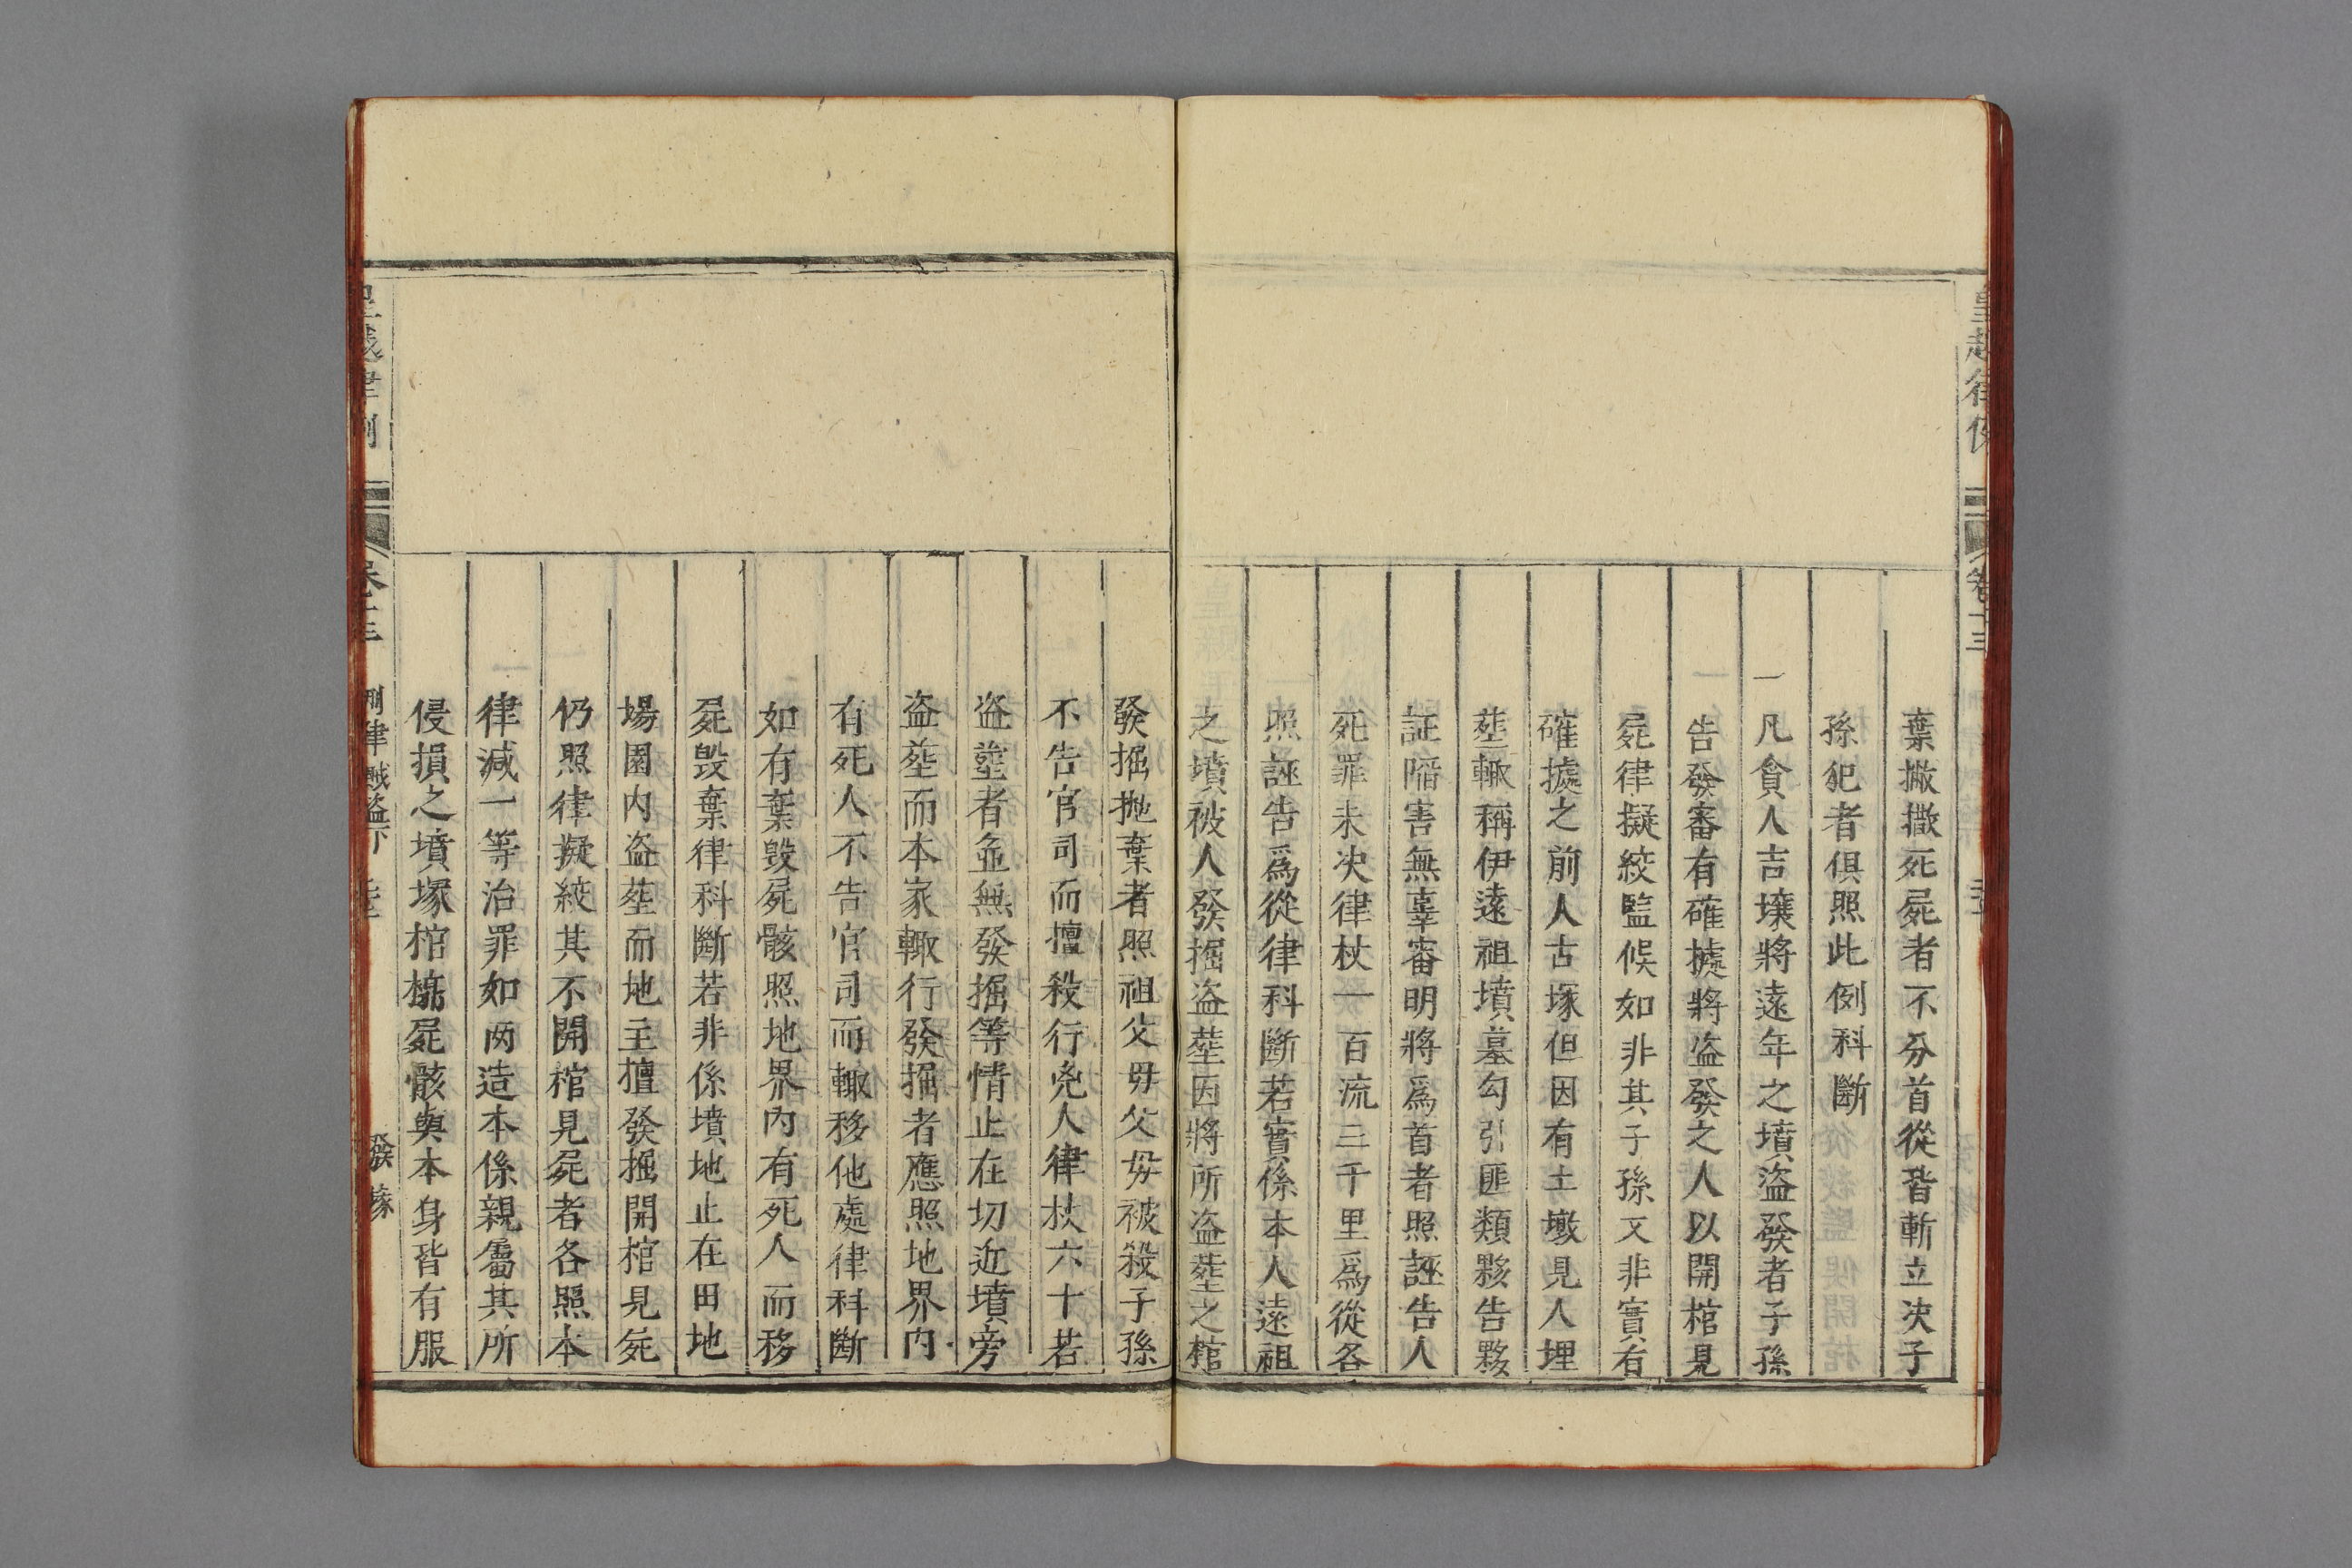 皇越律例
卷十三
棄撇撒死屍者不分首從皆斬立決子
孫犯者俱照此例科斷
一凡貪人吉壤將遠年之墳盜發者子孫
告發審有確據將盜發之人以開棺見
屍律擬絞監候如非其子孫又非實有
確據之前人古塚但因有土墩見人埋
塟輙稱伊遠祖墳墓勾引匪類夥告夥
証隌害無辜審明將爲首者照誣告人
死罪未决律杖一百流三千里爲從各
照誣告爲從律科斷若實係本人遠祖
之墳被人發掘盜塟因將所盜塟之棺
發掘抛棄者照祖父母父母被殺子孫
不告官司而擅殺行兇人律杖六十若
盜塟者並無發掘等情止在切近墳旁
盜塟而本家輙行發掘者應照地界内
有死人不告官司而輙移他處律科斷
如有棄毀屍骸照地界内有死人而移
屍毀棄律科斷若非係墳地止在田地
場園内盜塟而地主擅發掘開棺見屍
仍照律擬絞其不開棺見屍者各照本
律減一等治罪如两造本係親屬其所
侵損之墳塚棺槨屍骸與本身皆有服
刑律賊盜下
發塚